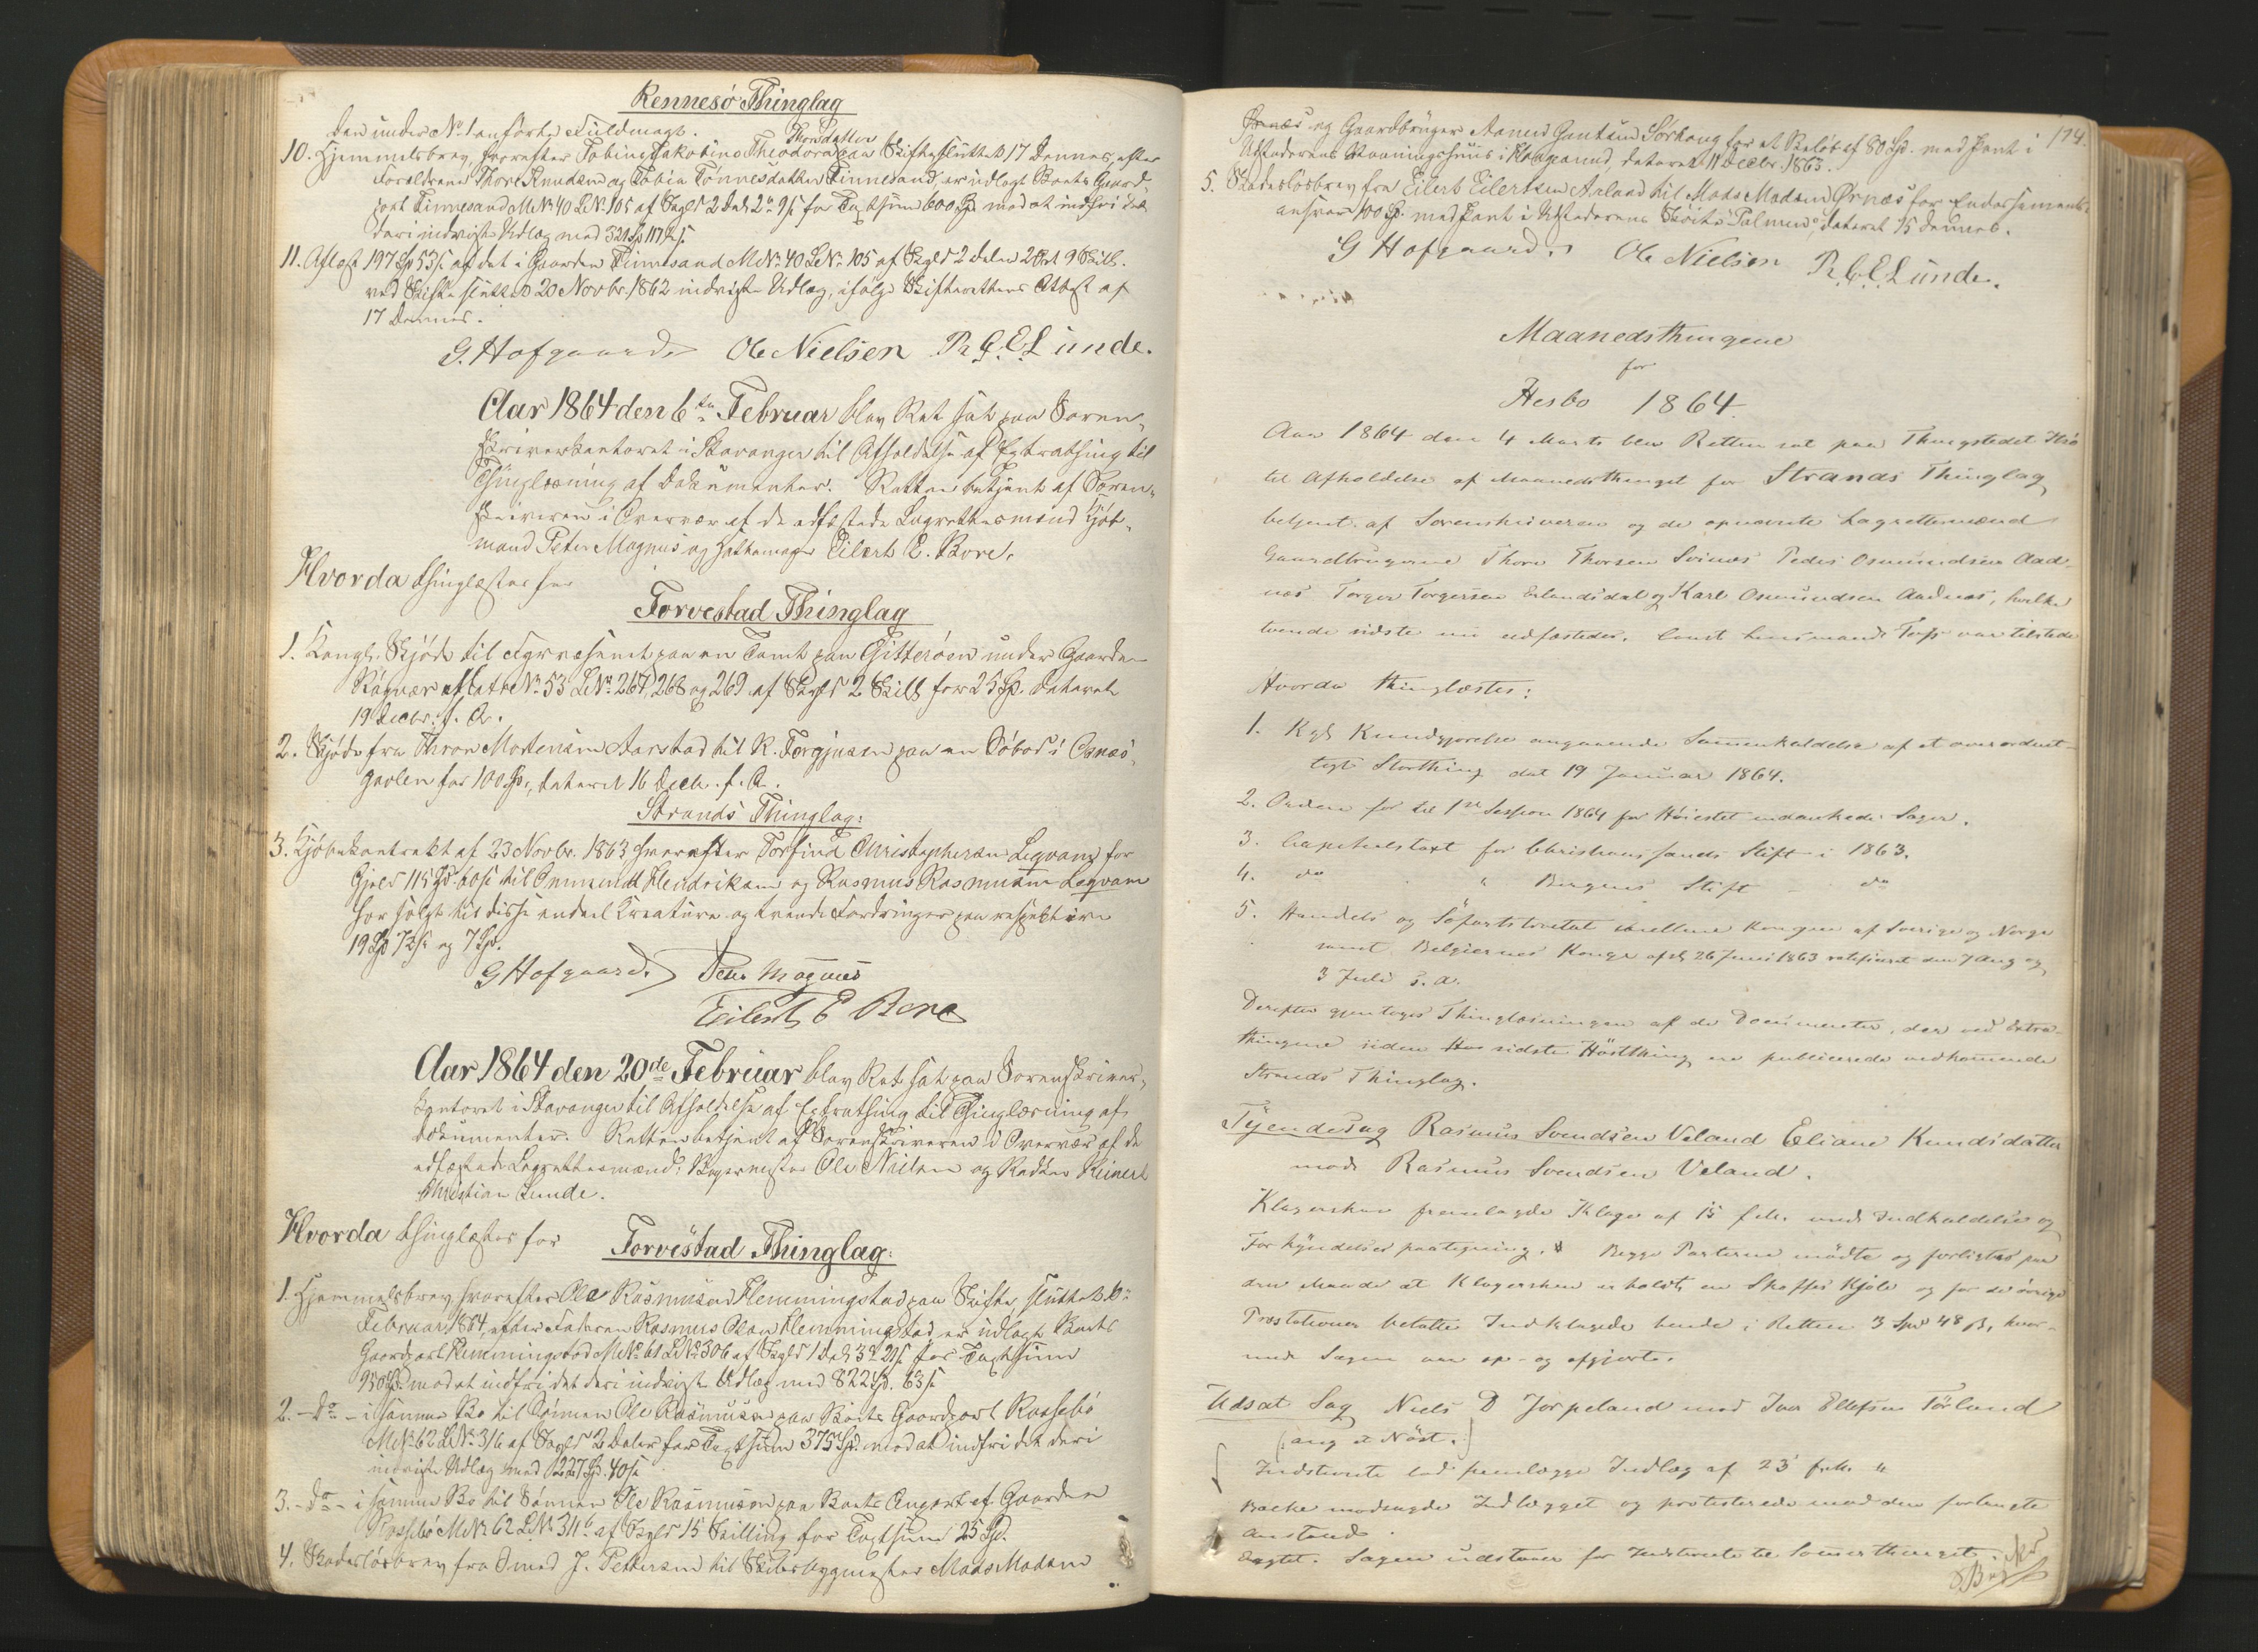 Rennesö Thinglag
den under No 1 anförte Fuldmagt.
10. Hjemmelsbrev, hvorefter Tobine Jakobine Theodora Thorsdatter paa Skifte sluttet 17 dennes, efter
Forældrene Thore Knudsen og Tobia Tönnesdatter Finnesand, er udlagt Boets Gaard-
part Finnesand M No 40 L No 105 af Skyld 2 Dal. 2 Ort 9 s for Taxtsum 600 Spd mod at indfri det
deri indviste Udlæg med 321 Spd 117 s.
11. Aflæst 197 Spd 53 s af det i Gaarden Finnesand M No 40 L No 105 af Skyld 2 Daler 2 Ort 9 Skill.
ved Skifte sluttet 20 Novbr. 1862 indviste Udlæg, ifølge Skifterettens Attest af
17 dennes.
G. Hofgaard Ole Nielsen R. C. E. Lunde.
Aar 1864 den 6te Februar blev Ret sat paa Soren-
skriverkontoret i Stavanger til Afholdelse af Extrathing til
Thinglæsning af Dokumenter. Retten betjent af Soren-
skriveren i Overvær af de edfæstede Lagrettesmænd Kjöb-
mand Peter Magnus og Hattemager Eilert E. Bore.
Hvorda thinglæstes for
Torvestad Thinglag
1. Kongl. Skjöde til Fyrvæsenet paa en Tomt paa Gitteröen under Gaarden
Rögnær af Matr No 53 L No 267, 268 og 269 af Skyld 2 Skill for 25 Spd. dateret
19 Decbr. f. A.
2. Skjöde fra Thron Mortensen Aarstad til K. Torgjusen paa en Söbod i Osnæs-
gavlen for 100 Spd., dateret 16 Decbr. f. A.
Strands Thinglag:
3. Kjöbekontrakt af 23 Novbr. 1863 hvorefter Torfind Christophersen Legvam for
Gjeld 115 Spd 60 s til Ommund Hendriksen og Rasmus Rasmussen Legvam
har solgt til disse endeel Kreature og tvende Fordringer paa respektive
19 Spd 72 s og 7 Spd.
G Hofgaard. Peter Magnus
Eilert E Bore
Aar 1864 den 20de Februar blev Ret sat paa Sorenskriver-
kontoret i Stavanger til Afholdelse af Extrathing til Thinglæsning af
Dokumenter. Retten betjent af Sorenskriveren i Overvær af de
edfæstede Lagrettesmænd: Bagermester Ole Nielsen og Rodker Reinert
Christian Lunde.
Hvorda thinglæstes for Torvestad Thinglag:
1. Hjemmelsbrev hvorefter Ole Rasmussen Flemmingstad paa Skifte, sluttet 6te
Februar 1864, efter Faderen Rasmus Olsen Flemmingstad, er udlagt Boets
Gaardpart Flemmingstad M No 61 L No 306 af Skyld 1 Dal. 3 Ort 21 s for Taxtsum
950 Spd. mod at indfri det deri indviste Udlæg med 822 Spd. 63 s
2. - do - i samme Bo til Sönnen Ole Rasmussen paa Boets Gaardpart Rossebö
M No 62 L No 316 af Skyld 2 Daler for Taxtsum 375 Spd. mod at indfri det deri
indviste Udlæg med 227 Spd. 40 s
3. - do - i samme Bo til Sönnen Ole Rasmussen paa Boets Anpart af Gaarden
Rossebö M No 62 L No 311 b af Skyld 15 Skilling for Taxtsum 25 Spd.
4. Skadeslösbrev fra Omed J. Pettersen til Skibsbygmester Mads Madsen
174.
Ørnæs og Gaardbruger Asmus Gautsen Sörhaug for et Beløb af 80 Spd. med Pant i
Udstederens Vaaningshuus i Haugesund, dateret 11 Decbr. 1863.
5. Skadeslösbrev fra Eilert Eilertsen Arland til Mads Madsen Ørnæs for Endossements-
ansvar 100 Spd. med Pant i Udstederens Sköite "Palmen", dateret 15 dennes.
G Hofgaard. Ole Nielsen R. C. E. Lunde.
Maanedsthingene
for
Hesbö 1864.
Aar 1864 den 4 Marts blev Retten sat paa Thingstedet
til Afholdelse af Maanedsthinget for Strands Thinglag
betjent af Sorenskriveren og de opnævnte Lagrettemænd
Gaardbrugerne Thore Thorsen Svines Peder Osmundsen Aad-
næs Torger Torgersen Erlandsdal og Karl Osmundsen Aadnæs, hvilke
tvende sidste nu edfæstedes. Const Lensmand Tafs var tilstede
Hvorda thinglæstes:
1. Kgl Kundgjørelse angaaende Sammenkaldelse af et overordent-
ligt Storthing dat 19 Januar 1864.
2. Orden for til 1ste Session 1864 for Höiestet indankede Sager.
3. Capitelstaxt for Christianssands Stift i 1863.
4. do " Bergens Stift - do
5. Handels og Söfartstractat imellem Kongen af Sverige og Norge
samt Belgiernes Konge afsl 26 Juni 1863 ratificeret den 7 Aug og
3 Juli s. a.
Derefter gjentoges Thinglæsningen af de Documenter, der ved Extra-
thingene siden sidste Höstthing ere publicerede vedkommende
Strands Thinglag.
Tjendesag Rasmus Svendsen Veland Eliane Knudsdatter
mod Rasmus Svendsen Veland.
Klagersken fremlagde Klage af 15 feb. med Indkaldelse og
Forkyndelses paategning. Begge Parterne mödte og forligtes paa
den Maade at Klagersken erholdt en Skaffes Kjole og for de övrige
Prestationer betalte Indklagede hende i Retten 3 Spd 48 s, hvor-
med Sagen var op- og afgjort.
Udsat Sag Niels D Jörpeland mod Iver Ellefsen Törland
(ang et Nöst.)
Indstevnte lod fremlægge Indlæg af 23 feb. "
Backe modsagde Indlægget og protesterede mod den forlangte
Anstand.
Eragtet. Sagen udstaaer for Indstevnte til Sommerthinget.